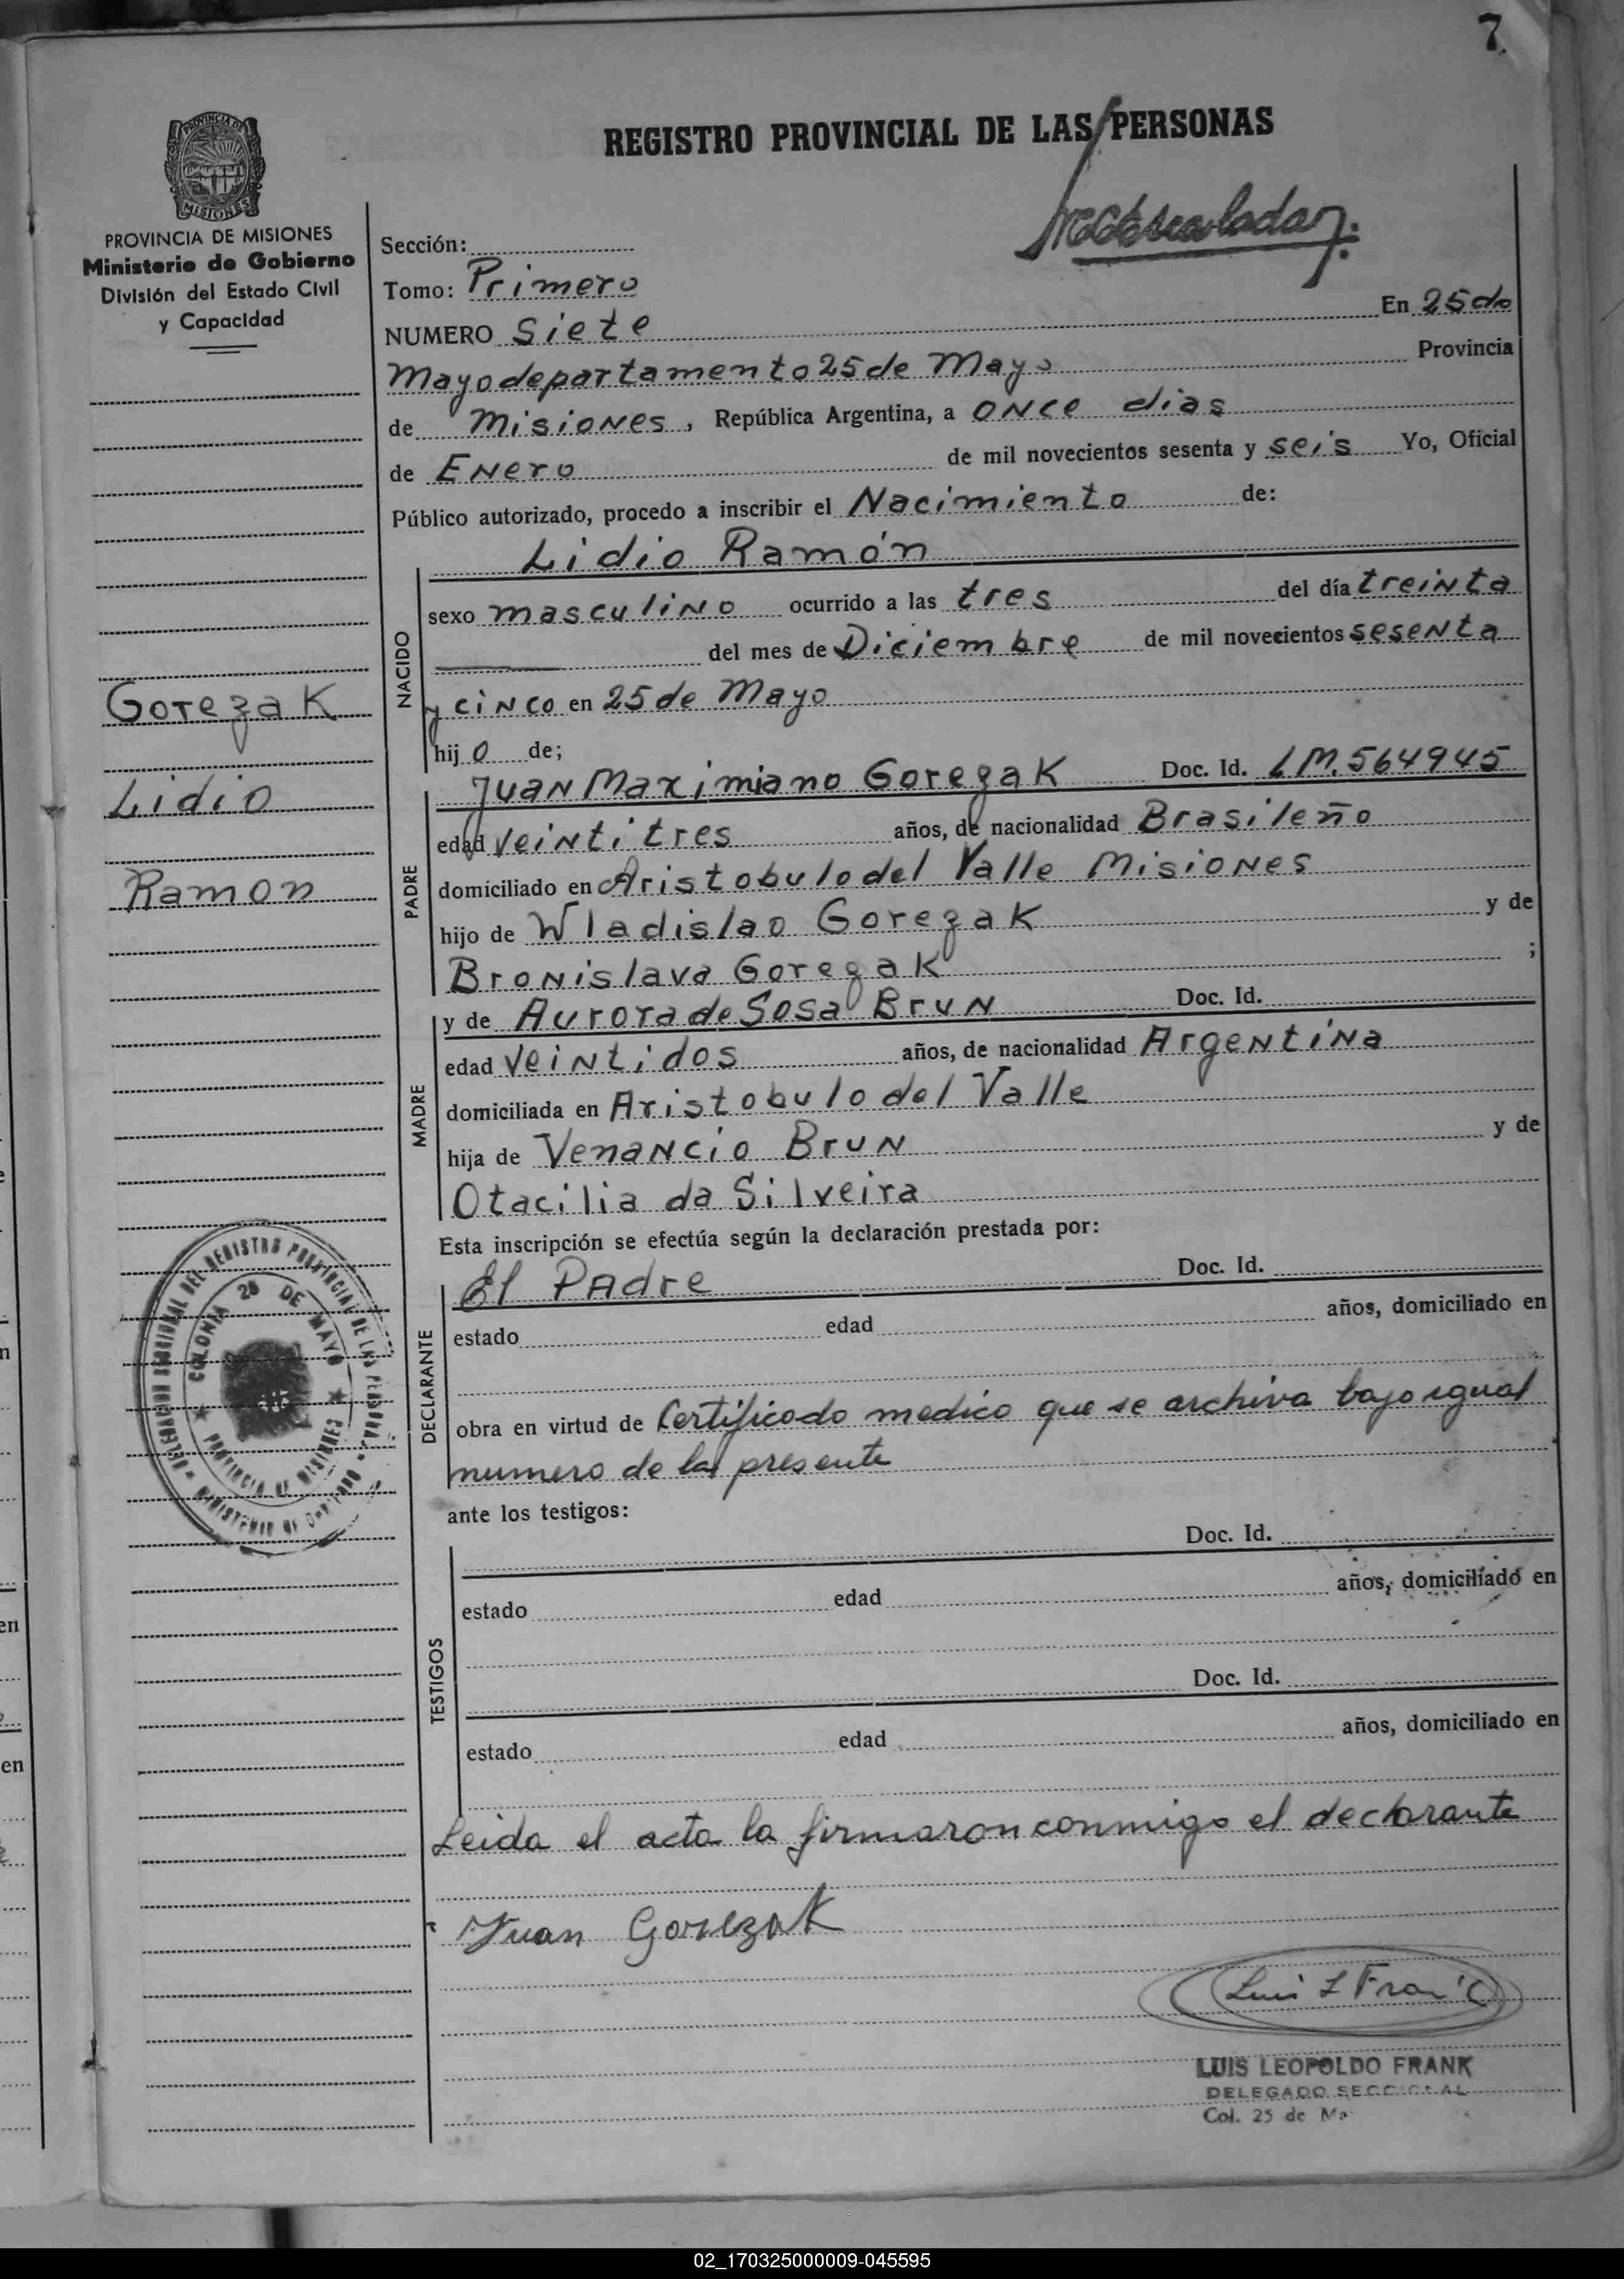 7
REGISTRO PROVINCIAL DE LAS PERSONAS
PROVINCIA DE MISIONES
Ministerio de Gobierno
División del Estado Civil
y Capacidad
Sección:
Tomo: Primero
NUMERO Siete En 25 de
Mayo departamento 25 de Mayo Provincia
de Misiones, República Argentina, a once dias
de Enero de mil novecientos sesenta y seis Yo, Oficial
Público autorizado, procedo a inscribir el Nacimiento de:
Lidio Ramón
NACIDO
sexo masculino ocurrido a las tres del día treinta
del mes de Diciembre de mil novecientos sesenta
y cinco en 25 de Mayo
hijo de;
Gorezak
Lidio
Ramon
PADRE
Juan Maximiano Gorezak Doc. Id. LM. 564945
edad veintitres años, de nacionalidad Brasileño
domiciliado en Aristobulo del Valle Misiones
hijo de Wladislao Gorezak y de
Bronislava Gorezak ;
MADRE
y de Aurora de Sosa Brun Doc. Id.
edad veintidos años, de nacionalidad Argentina
domiciliada en Aristobulo del Valle
hija de Venancio Brun y de
Otacilia da Silveira
Esta inscripción se efectúa según la declaración prestada por:
DECLARANTE
El Padre Doc. Id.
estado edad años, domiciliado en
obra en virtud de Certificado medico que se archiva bajo igual
numero de la presente
ante los testigos:
TESTIGOS
Doc. Id.
estado edad años, domiciliado en
Doc. Id.
estado edad años, domiciliado en
Leida el acta la firmaron conmigo el declarante
Juan Gorezak
Luis L Frank
LUIS LEOPOLDO FRANK
DELEGADO SECCIONAL
Col. 25 de Ma
DELEGACION SECCIONAL DEL REGISTRO PROVINCIAL DE LAS PERSONAS
MINISTERIO DE GOBIERNO
COLONIA 25 DE MAYO
PROVINCIA DE MISIONES
02_170325000009-045595